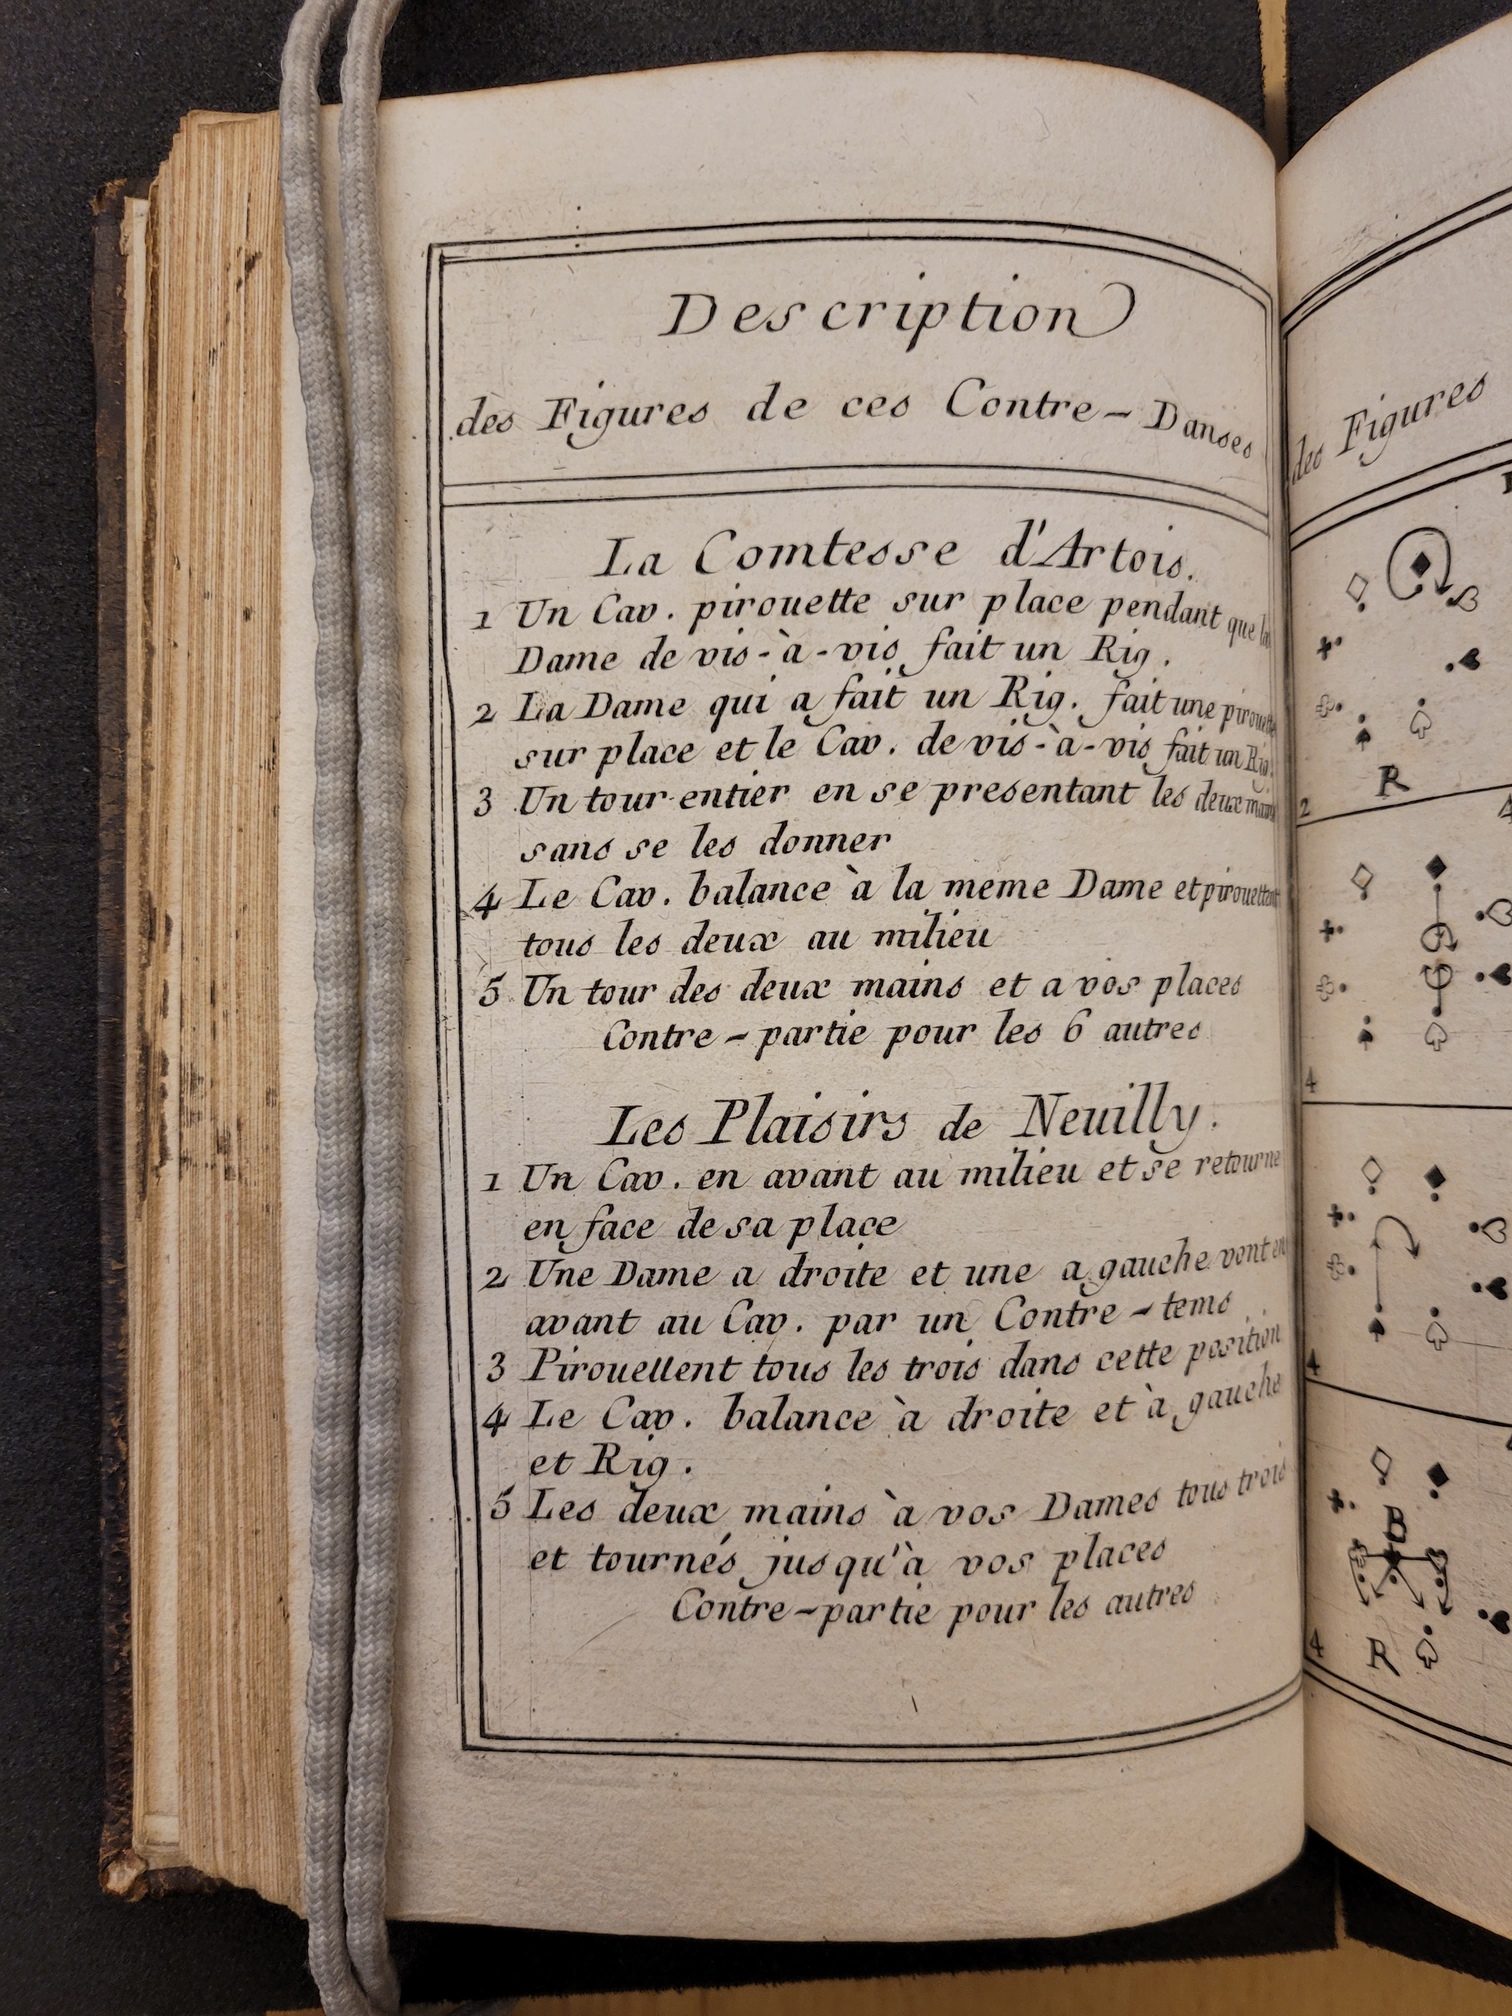 Description
des Figures de ces Contre-Danses
La Comtesse d'Artois.
1 Un Cav. pirouette sur place pendant que la
Dame de vis-à-vis fait un Rig.
2 La Dame qui a fait un Rig. fait une pirouette
sur place et le Cav. de vis-à-vis fait un Rig.
3 Un tour entier en se presentant les deux mains
sans se les donner
4 Le Cav. balance à la meme Dame et pirouettent
tous les deux au milieu
5 Un tour des deux mains et a vos places
Contre-partie pour les 6 autres
Les Plaisirs de Neuilly.
1 Un Cav. en avant au milieu et se retourne
en face de sa place
2 Une Dame a droite et une a gauche vont en
avant au Cav. par un Contre-tems
3 Pirouettent tous les trois dans cette position
4 Le Cav. balance à droite et à gauche
et Rig.
5 Les deux mains à vos Dames tous trois
et tournés jusqu'à vos places
Contre-partie pour les autres
des Figures
R
2
4
4
B
4
R